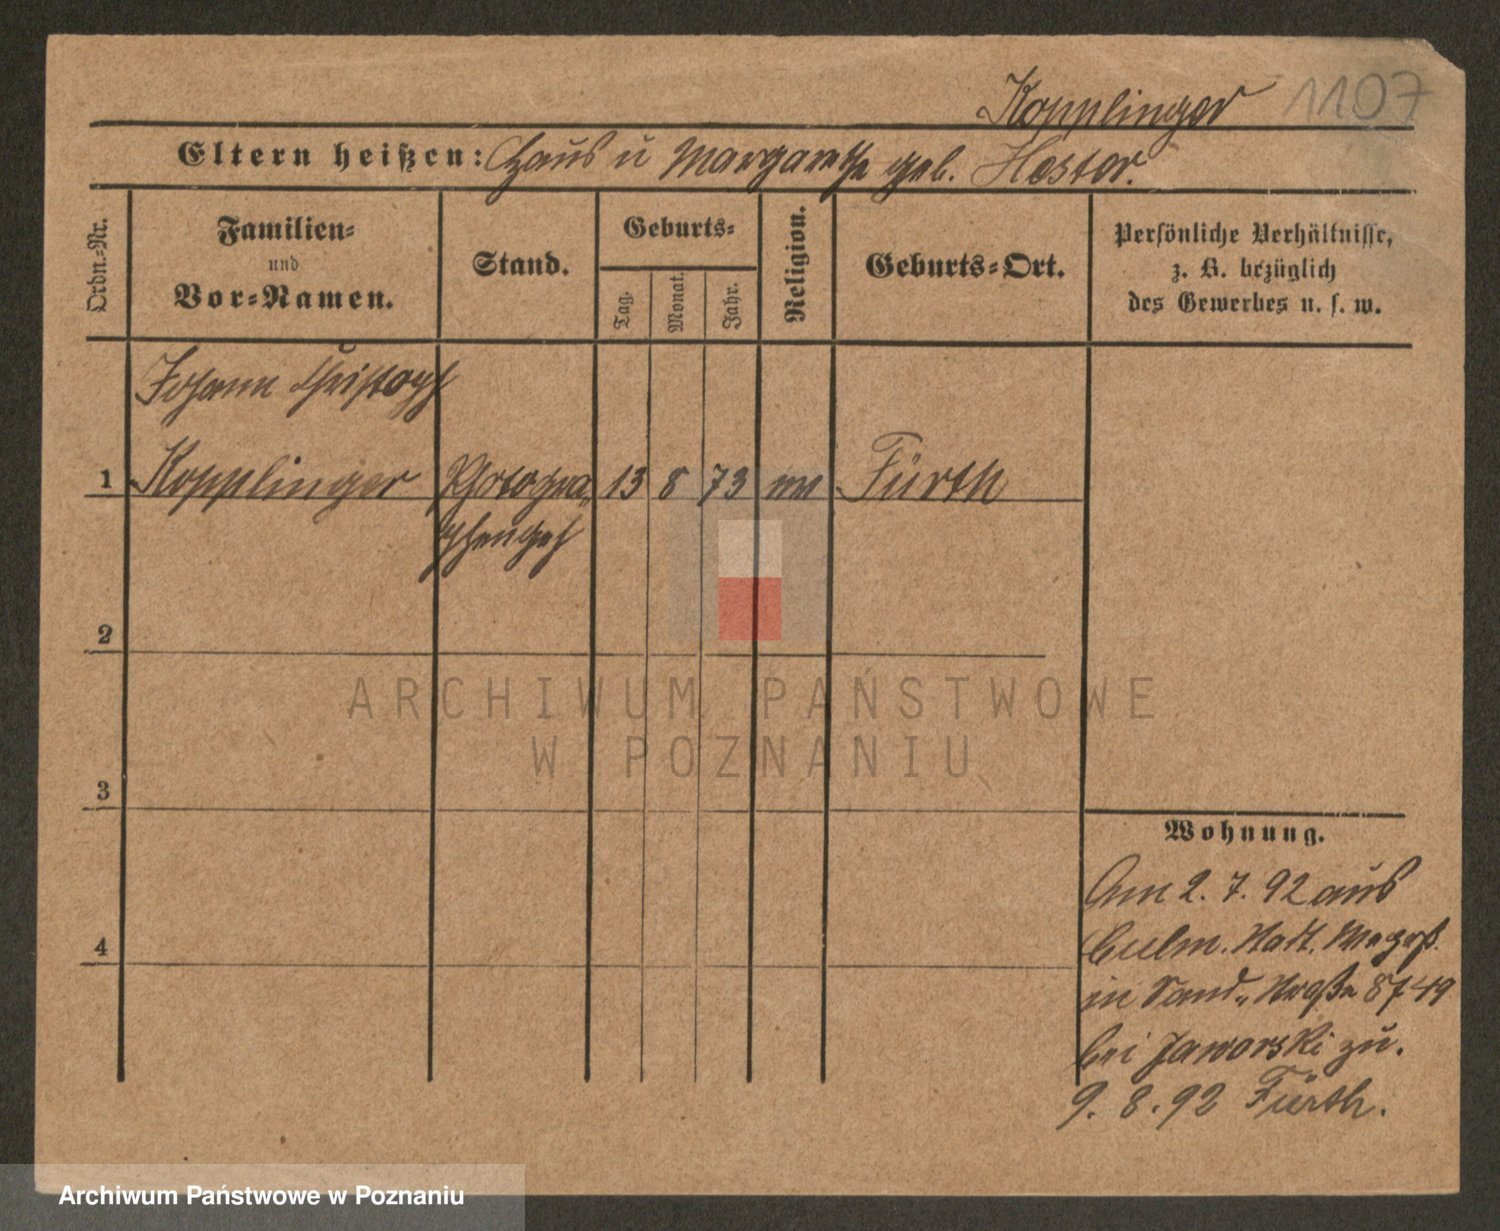 Kopplinger 1107
Eltern heißen: Hans u Margarethe geb. Hestor.
Ordn.-Nr.
Familien-
und
Vor-Namen.
Stand.
Geburts-
Tag.
Monat.
Jahr.
Religion.
Geburts-Ort.
Persönliche Verhältnisse,
z. B. bezüglich
des Gewerbes u. s. w.
Johann Christoph
1 Kopplinger Photogra„ 13 8 73 Fürth
phengeh
2
3
4
Wohnung.
Am 2. 7. 92 aus
Culm.
in Sand„ 8 f 49
bei Jaworski zu.
9. 8. 92 Fürth.
ARCHIWUM PAŃSTWOWE
W POZNANIU
Archiwum Państwowe w Poznaniu